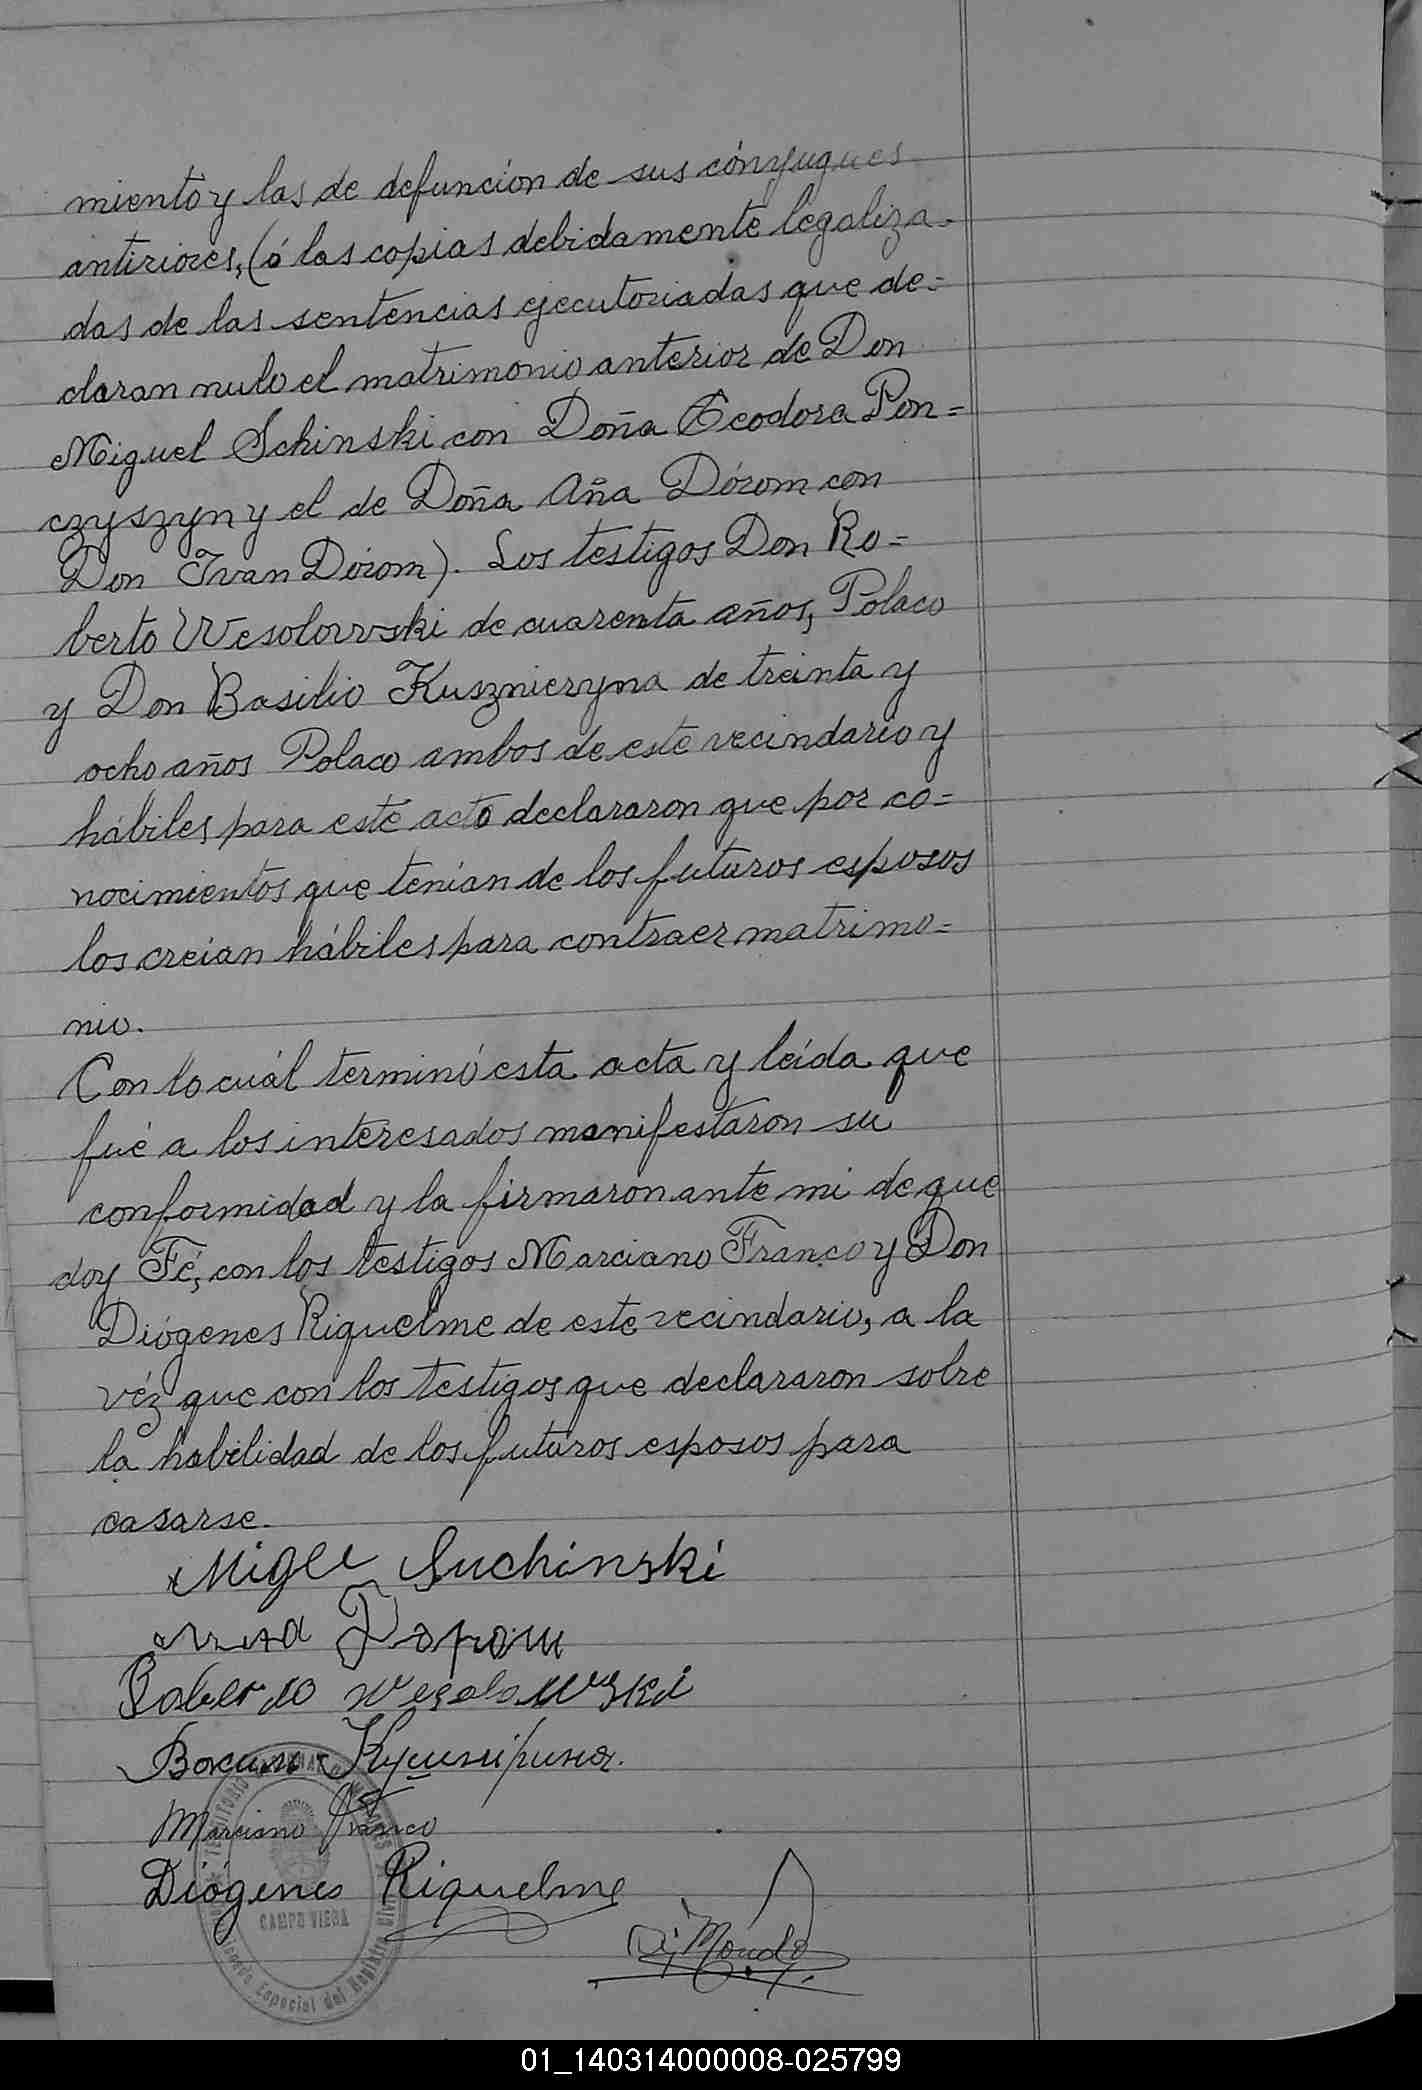 miento y las de defunción de sus cónyugues
antiriores, (ó las copias debidamente legaliza=
das de las sentencias ejecutoriadas que de=
claran nulo el matrimonio anterior de Don
Miguel Schinski con Doña Teodora Pon=
czyszyn y el de Doña Aña Dórom con
Don Ivan Dórom). Los testigos Don Ro=
berto Wesolowski de cuarenta años, Polaco
y Don Basilio Kusznieryna de treinta y
ocho años Polaco ambos de este vecindario y
hábiles para este acto declararon que por co=
nocimientos que tenían de los futuros esposos
los creían hábiles para contraer matrimo=
nio.
Con lo cuál terminó esta acta y leída que
fué a los interesados manifestaron su
conformidad y la firmaron ante mi de que
doy Fé, con los testigos Marciano Franco y Don
Diógenes Riquelme de este vecindario, a la
véz que con los testigos que declararon sobre
la habilidad de los futuros esposos para
casarse.
Migel Suchinski
Roberto Wesolowski
Marciano Franco
Diógenes Riquelme
CAMPO VIERA
Especial del Registro Civil
01_140314000008-025799